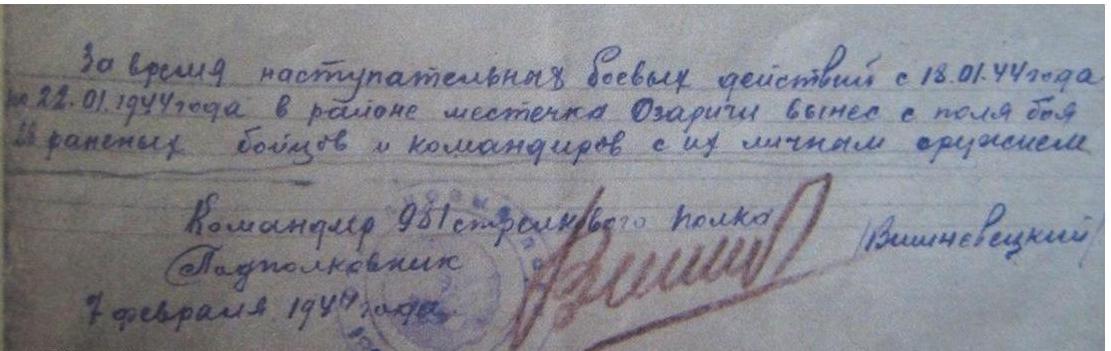 За время наступательных боевых действий с 18.01.44 года
по 22.01.1944 года в районе местечка Озаричи вынес с поля боя
раненых бойцов и командиров с их личным оружием
Командир 981 стрелкового полка
Подполковник /Вишневецкий/
7 февраля 1944 года